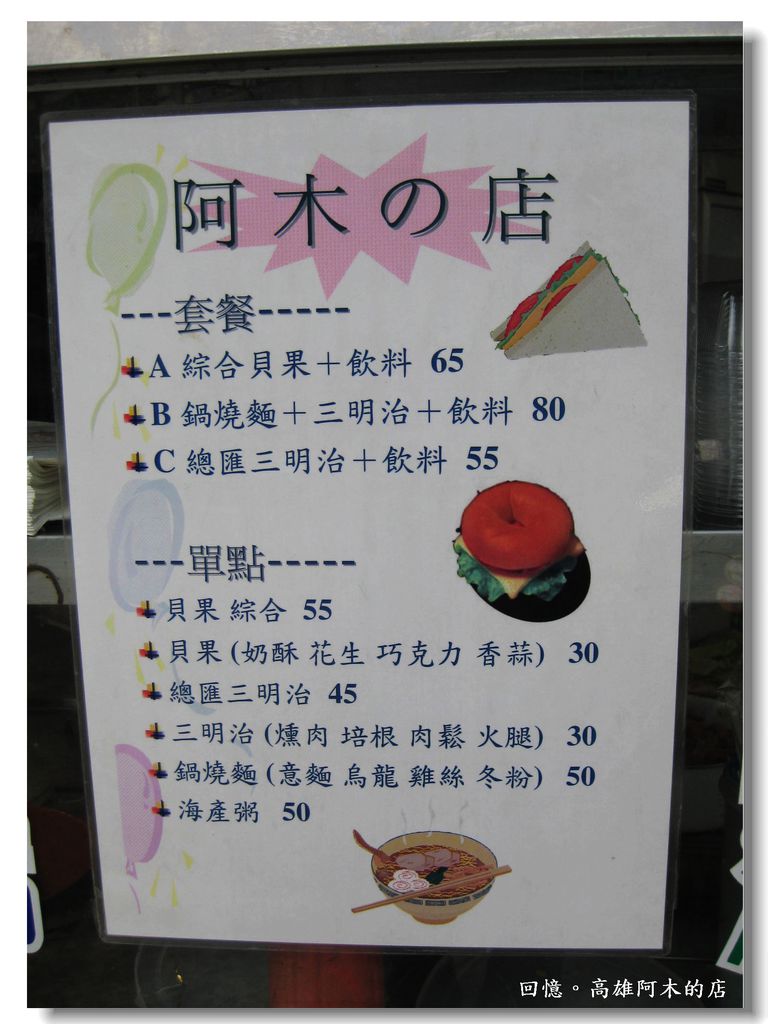 阿木の店
---套餐-----
A 綜合貝果＋飲料 65
B 鍋燒麵＋三明治＋飲料 80
C 總匯三明治＋飲料 55
---單點-----
貝果 綜合 55
貝果 (奶酥 花生 巧克力 香蒜) 30
總匯三明治 45
三明治 (燻肉 培根 肉鬆 火腿) 30
鍋燒麵 (意麵 烏龍 雞絲 冬粉) 50
海產粥 50
回憶。高雄阿木的店